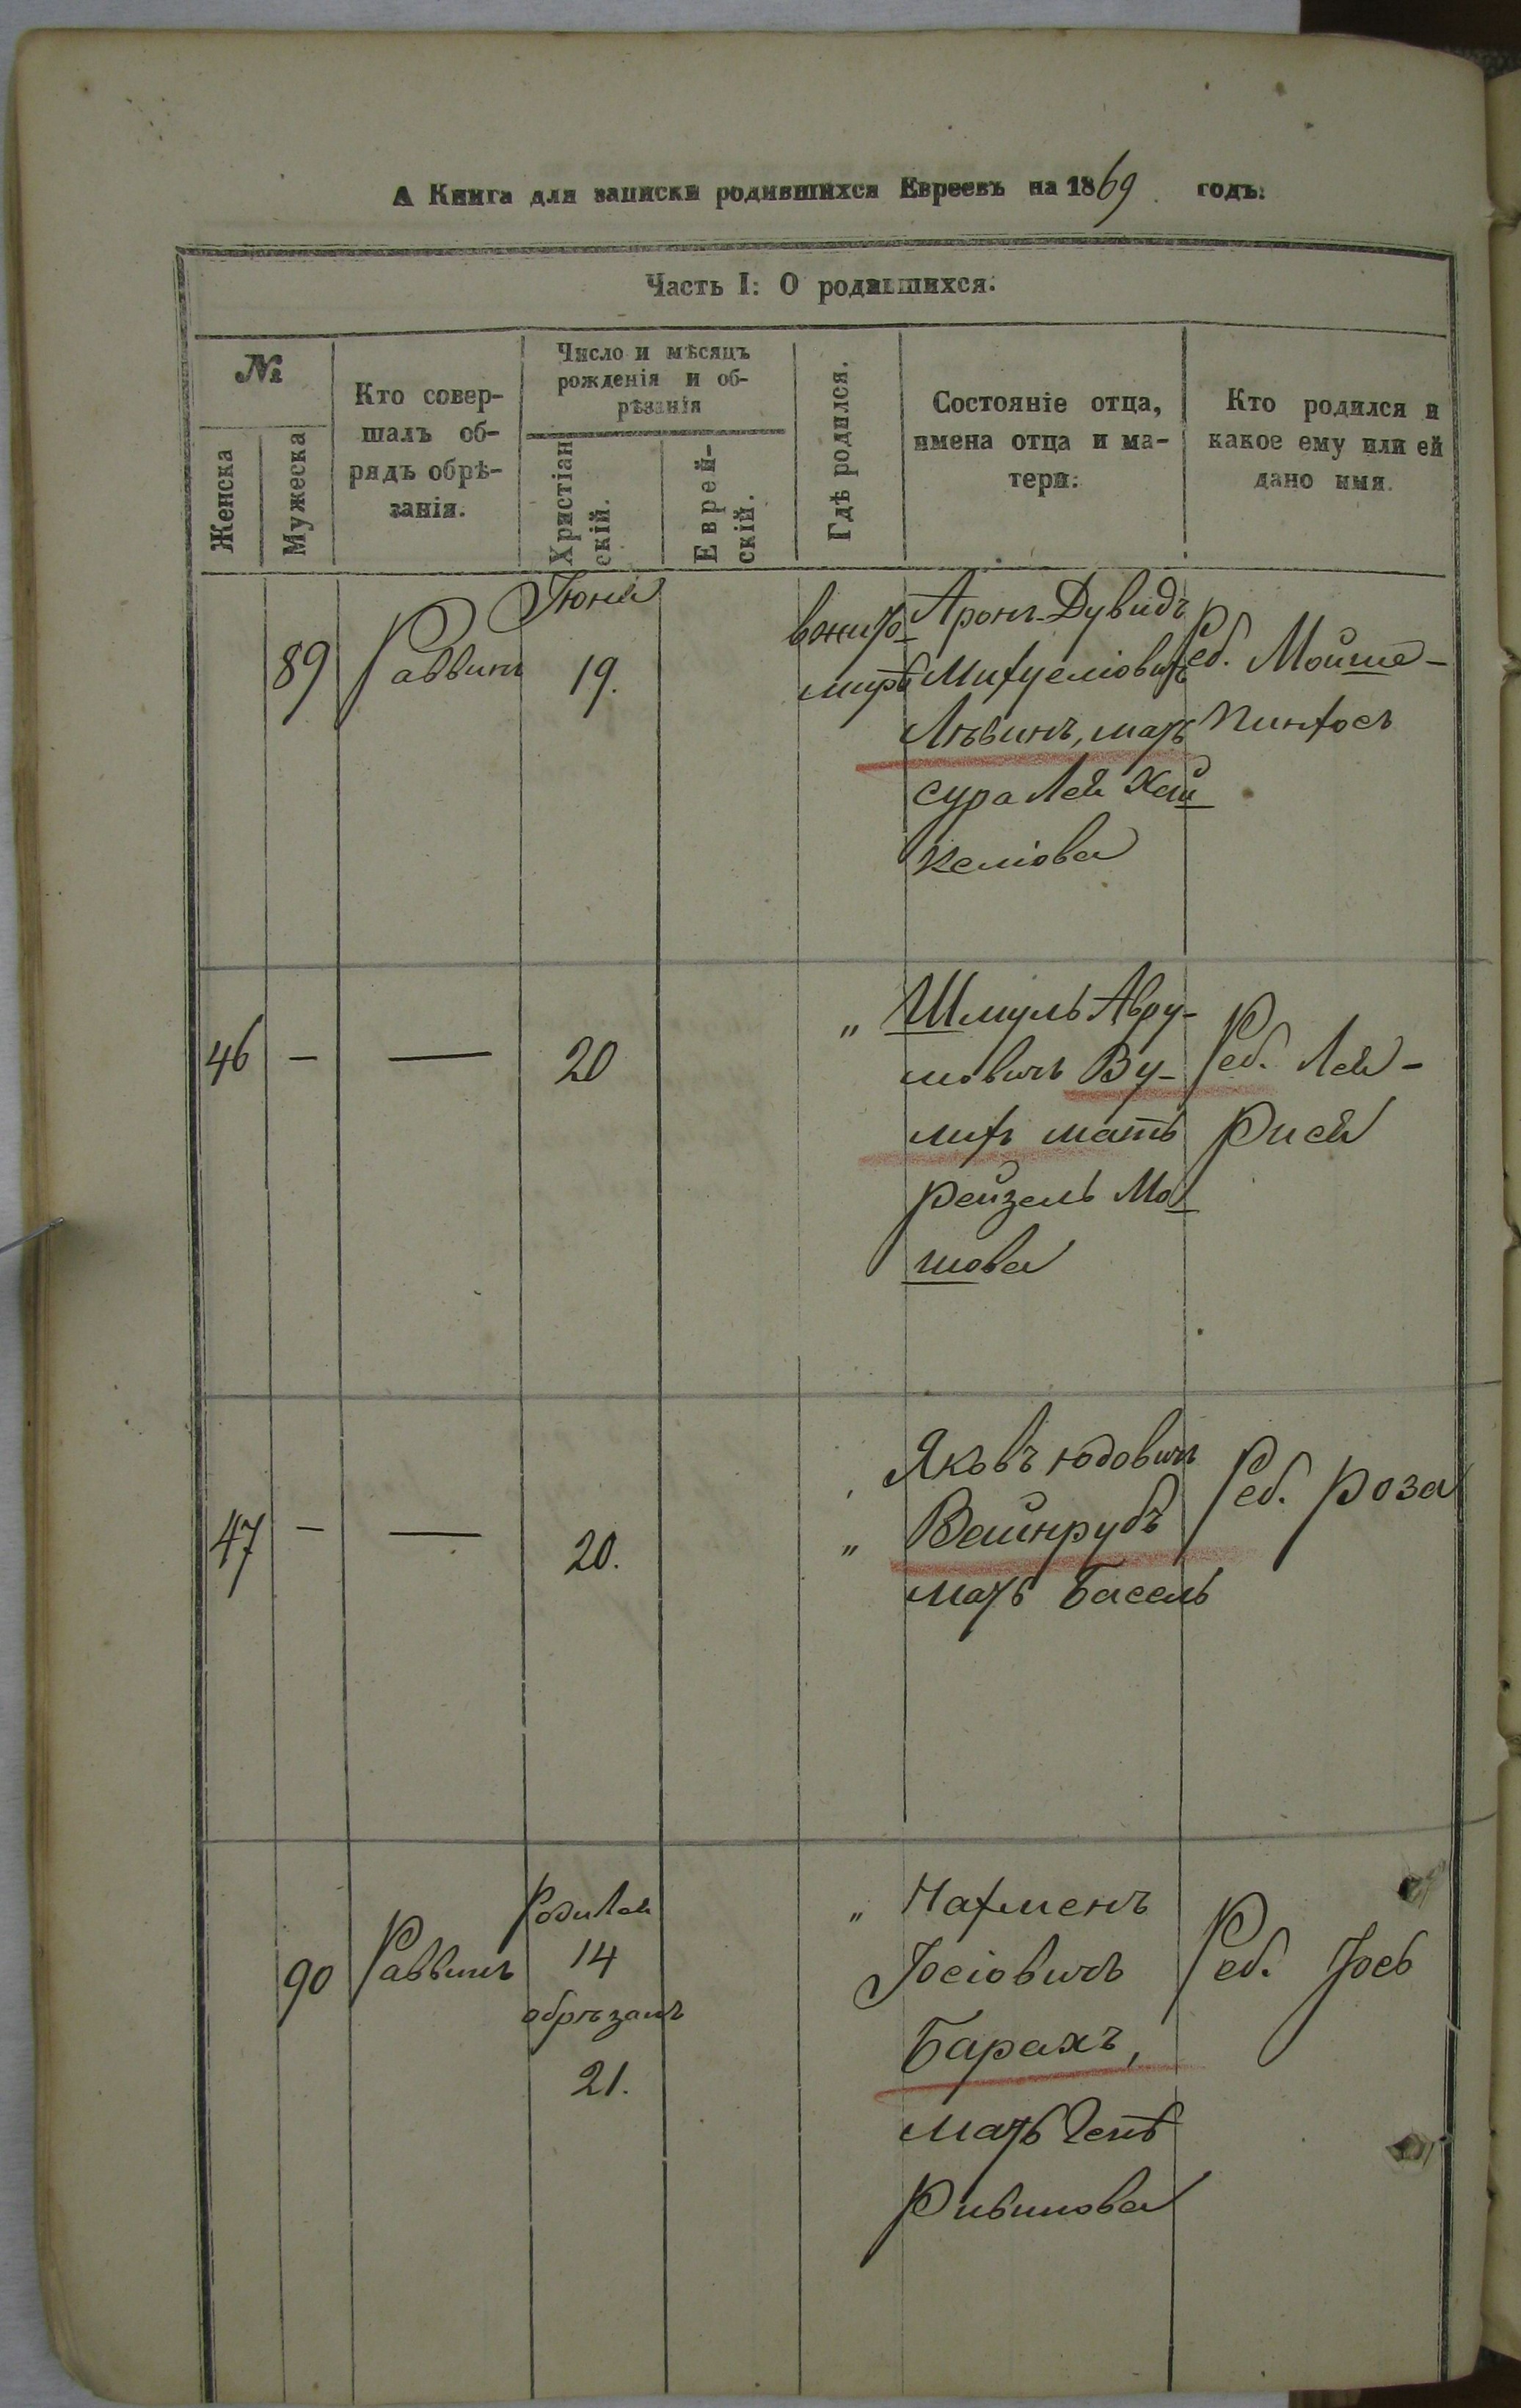 А Книга для записки родившихся Евреевъ на 1869 годъ:
Часть I: О родившихся.
№
Женска
Мужеска
Кто совер-
шалъ об-
рядъ обрѣ-
занія.
Число и мѣсяцъ
рожденія и об-
рѣзанія
Христіан
скій.
Еврей-
скій.
Гдѣ родился.
Состояніе отца,
имена отца и ма-
тери.
Кто родился и
какое ему или ей
дано имя.
Іюня
89
Раввинъ
19.
в жито-
мирѣ
Аронъ-Дувидъ
Левинъ, мать
сура Лея Хай
келіова
Реб. Мойше-
Пинхосъ
46
—
—
20
„
Шмуль Авру-
мовичъ Ву-
лихъ мать
рейзель Мо
шова
Реб. Лея-
Рися
47
—
—
20.
„
Яковъ юдовичъ
Вейнрубъ
мать Басель
Реб. роза
90
Раввинъ
родился
14
обрѣзанъ
21.
„
Нахменъ
Іосіовичъ
Барахъ,
мать
Реб. Іось